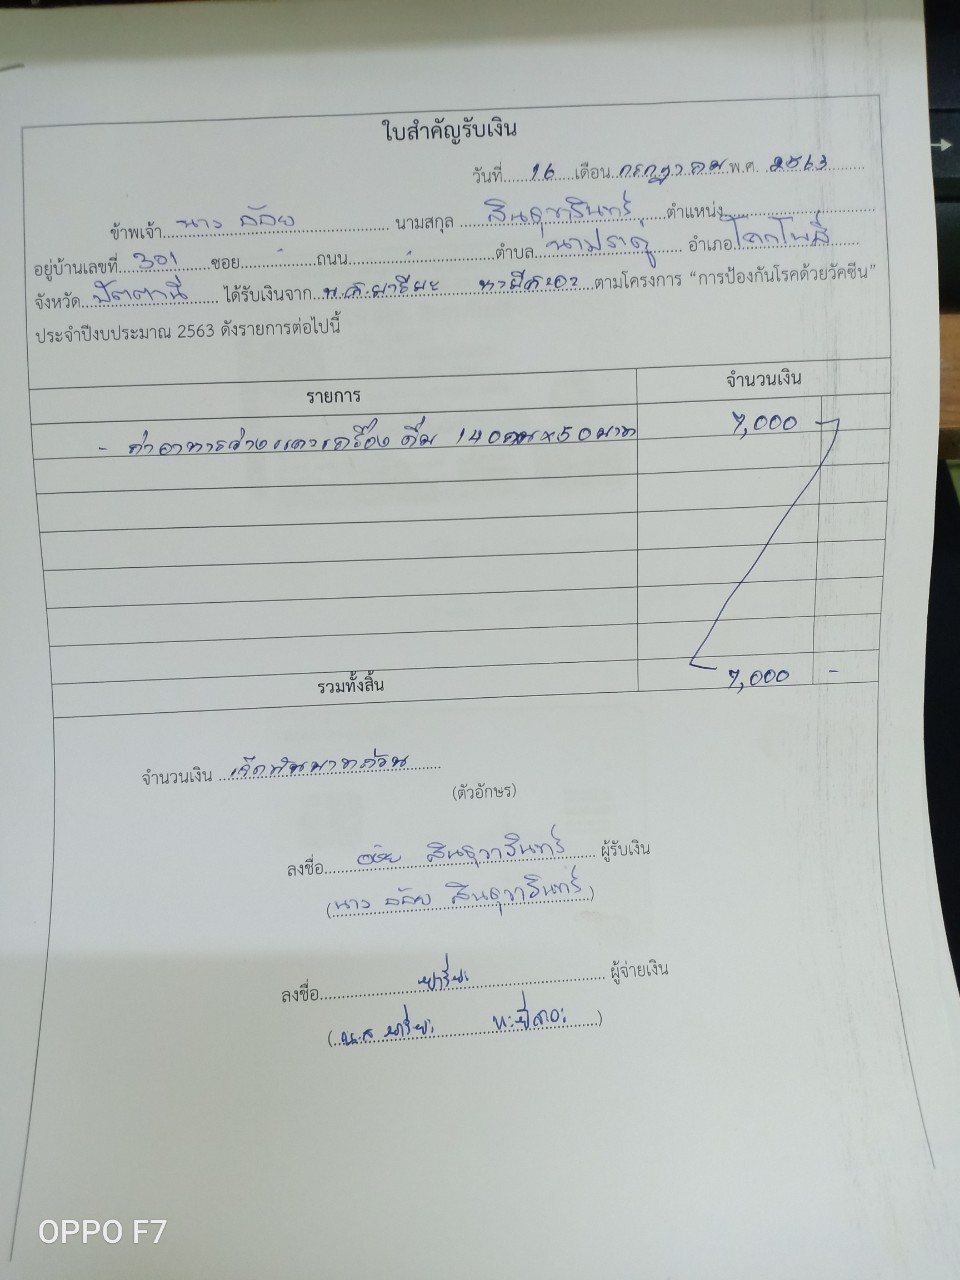 ใบสำคัญรับเงิน
วันที่ 16 เดือน กรกฎาคม พ.ศ. 2563
ข้าพเจ้า นาง อ้อย นามสกุล สินธุวารินทร์ ตำแหน่ง
อยู่บ้านเลขที่ 301 ซอย - ถนน - ตำบล นาประดู่ อำเภอ โคกโพธิ์
จังหวัด ปัตตานี ได้รับเงินจาก น.ส. ตามโครงการ “การป้องกันโรคด้วยวัคซีน”
ประจำปีงบประมาณ 2563 ดังรายการต่อไปนี้
รายการ จำนวนเงิน
- ค่าอาหารว่างและเครื่องดื่ม 140 คน x 50 บาท 7,000 -
รวมทั้งสิ้น 7,000 -
จำนวนเงิน เจ็ดพันบาทถ้วน
(ตัวอักษร)
ลงชื่อ อ้อย สินธุวารินทร์ ผู้รับเงิน
(นาง อ้อย สินธุวารินทร์)
ลงชื่อ ผู้จ่ายเงิน
(น.ส. )
OPPO F7